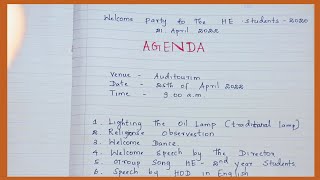 Welcome Party to The HE - students - 2020
21 April 2022
AGENDA
Venue - Auditourim
Date - 26th of April 2022
Time - 9.00 a.m
1. Lighting The Oil Lamp (traditional lamp)
2. Religense Observestion
3. Welcome Dance
4. Welcome Speech by The Director
5. Group Song HE - 2nd year students
6. Speech by HOD in English